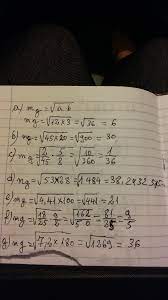 a) mg = √a b
mg = √12 × 3 = √36 = 6
b) mg = √45 × 20 = √900 = 30
c) mg = √2/45 = 5/8 = √10/360 = 1/36
d) mg = √53 × 28 = √1 484 = 38,2
e) mg = √4,41 × 100 = √441 = 21
f) mg = √18/25 = 9/2 = √162/50 = 81/25 = 9/5
g) mg = √7,2 × 180 = √1269 = 36